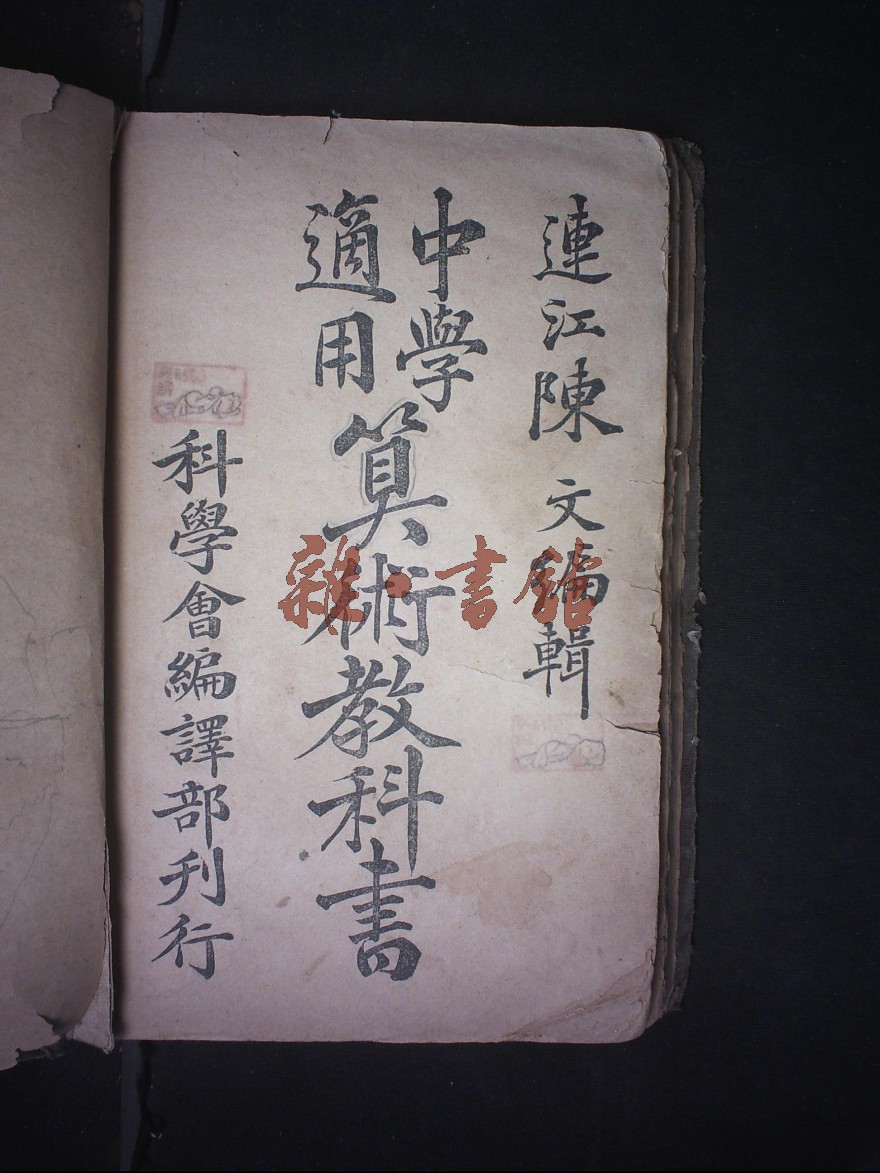 連江陳文編輯
中學
適用
算術教科書
科學會編譯部刊行
雜·書館